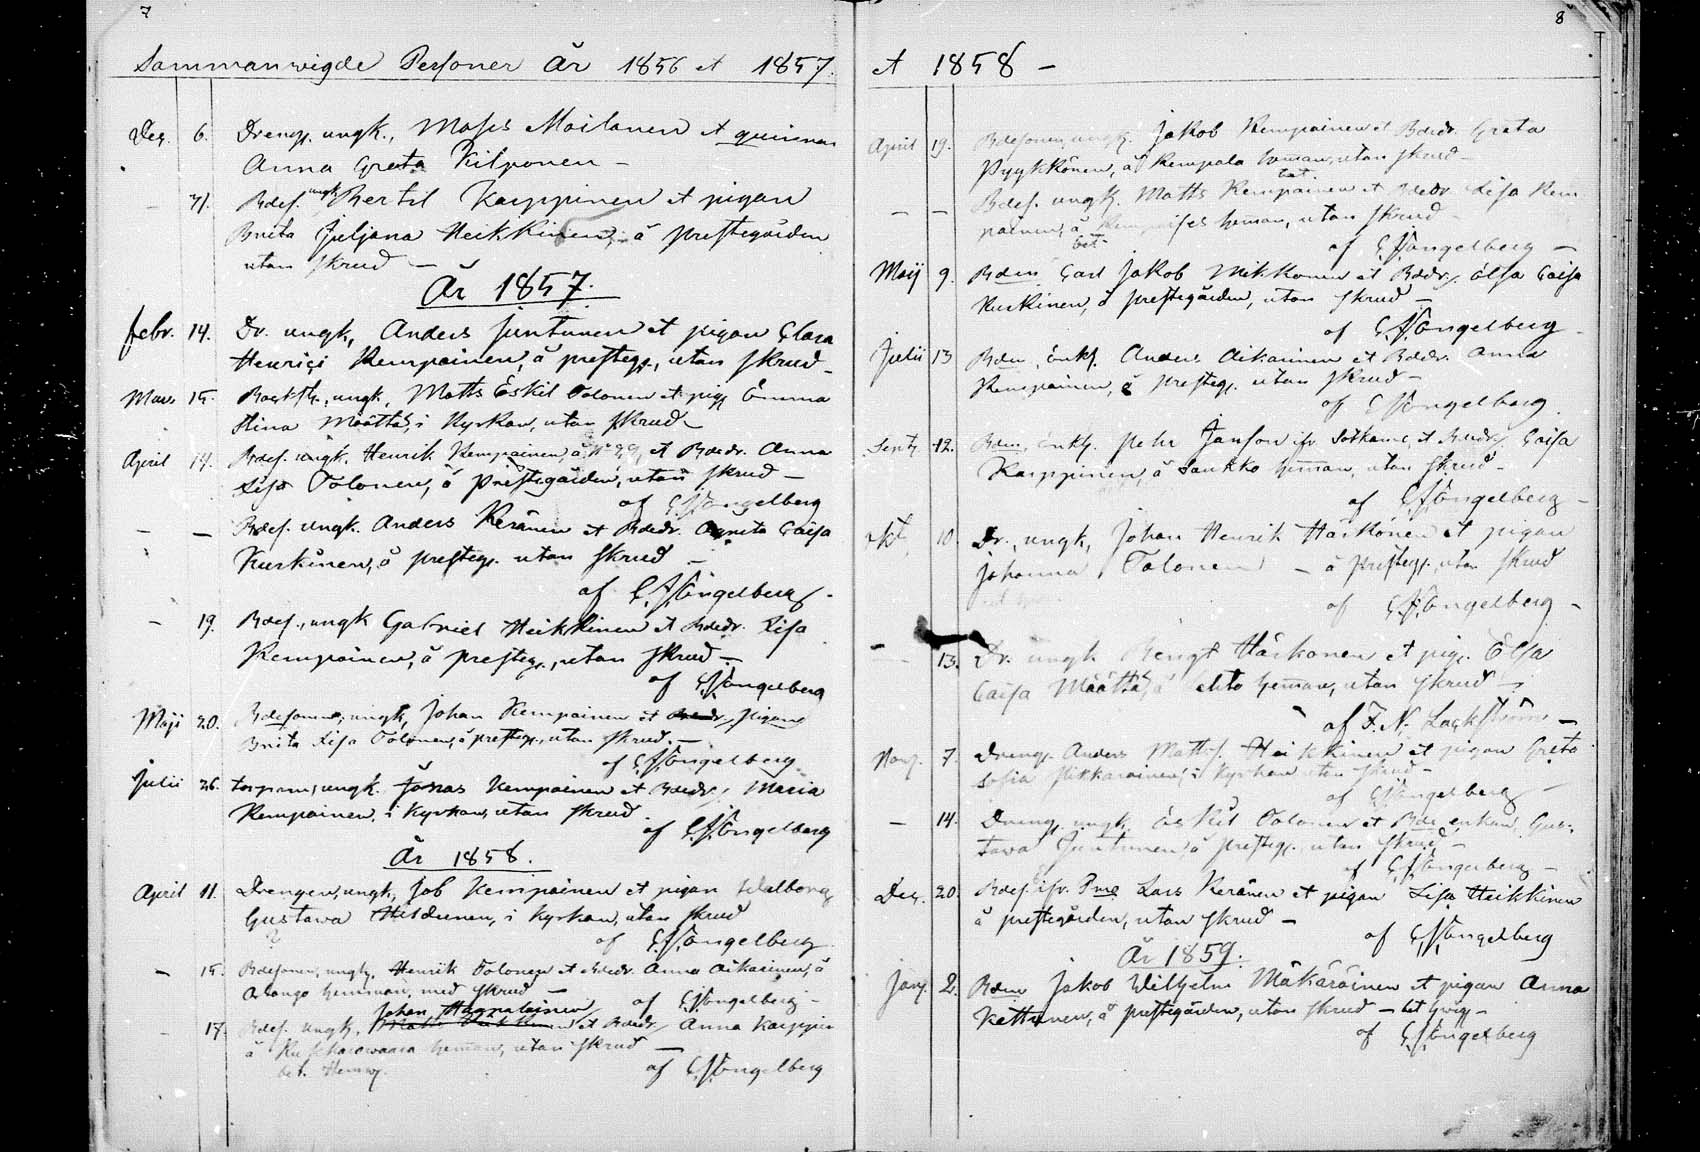 7
Sammanwigde Personer År 1856 et 1857.
Dec. 6. Dreng. ungk., Moses Moilanen et quinnan
Anna Greta Kilponen –
– 31. Bdes. ungk. Bertil Karppinen et pigan
Brita Juljana Heikkinen, å prestegården
utan skrud –
År 1857.
Febr. 14. Dr. ungk, Anders Juntunen et pigan Clara
Henrica Kempainen, å presteg., utan skrud –
Mar. 15. ungk, Matts Eskil Tolonen et pig. Emma
Stina Määttä, i Kyrkan, utan skrud –
April 14. Bdes. ungk. Henrik Kempainen, et Bdedr. Anna
Lisa Tolonen, å Prestegården, utan skrud –
af C.A. Engelberg
– – Bdes. ungk. Anders Keränen et Bdedr. Caisa
Kurkinen, å presteg. utan skrud –
af C.A. Engelberg –
– 19. Bdes., ungk Gabriel Heikkinen et Bdedr. Lisa
Kempainen, å presteg., utan skrud –
af C.A. Engelberg
Maji 20. Bdesonen, ungk, Johan Kempainen et pigan
Brita Lisa Tolonen, å presteg., utan skrud. –
af C.A. Engelberg
Julii 26. torparn, ungk. Jonas Kempainen et Bdedr. Maria
Kempainen, i Kyrkan, utan skrud.
af C.A. Engelberg
År 1858.
April 11. Drengen, ungk, Job Kempainen et pigan Walborg
Gustawa i Kyrkan, utan skrud
af C.A. Engelberg
– 15. Bdesonen, ungk. Henrik Tolonen et Bdedr. Anna Aikarinen, å
hemman, med skrud –
af C.A. Engelberg –
Johan
– 17. Bdes. ungk. et Bdedr. Anna Karppin
å heman, utan skrud –
af C.A. Engelberg
8
et 1858 –
April 19. Bdesonen, ungk. Jakob Kempainen et Bdedr. Greta
Pyykkönen, å Kempala heman, utan skrud –
– – Bdes. ungk. Matts Kempainen et Bdedr. Lisa Kem
painen, å heman, utan skrud –
af C.A. Engelberg –
Maij 9. Bden Carl Jakob Mikkonen et Bdedr. Elsa Caisa
Kurkinen, å prestegården, utan skrud –
af C.A. Engelberg
Julii 13 Bden, enkl. Anders Aikarinen et Bdedr. Anna
Kempainen, å presteg. utan skrud –
af C.A. Engelberg.
Sept. 12. Bden, enkl. Pehr Janson ifr. Sotkamo, et Bdedr. Caisa
Karppinen, å Saukko heman, utan skrud –
af C.A. Engelberg –
Okt 10. Dr., ungk, Johan Henrik Härkönen et pigan
Johanna Tolonen – å presteg. utan skrud
af C.A. Engelberg –
– 13. Dr. ungk Bengt Härkönen et pig. Elsa
Caisa Määttä, å heman, utan skrud –
af F.N. Lackström –
Nov. 7. Dreng. Anders Matts. Heikkinen et pigan Greta
Sofia i Kyrkan utan skrud –
af C.A. Engelberg –
– 14. Dreng. ungk. Eskil Tolonen et Bde enkan Gus-
tawa Juntunen, å presteg. utan skrud –
af C.A. Engelberg –
Dec. 20. Bdes. ifr. Pmo Lars Keränen et pigan Lisa Heikkinen
å prestegården, utan skrud –
af C.A. Engelberg
År 1859.
Jan. 2. Bden Jakob Wilhelm Mäkäräinen et pigan Anna
Kettunen, å prestegården, utan skrud –
af C.A. Engelberg